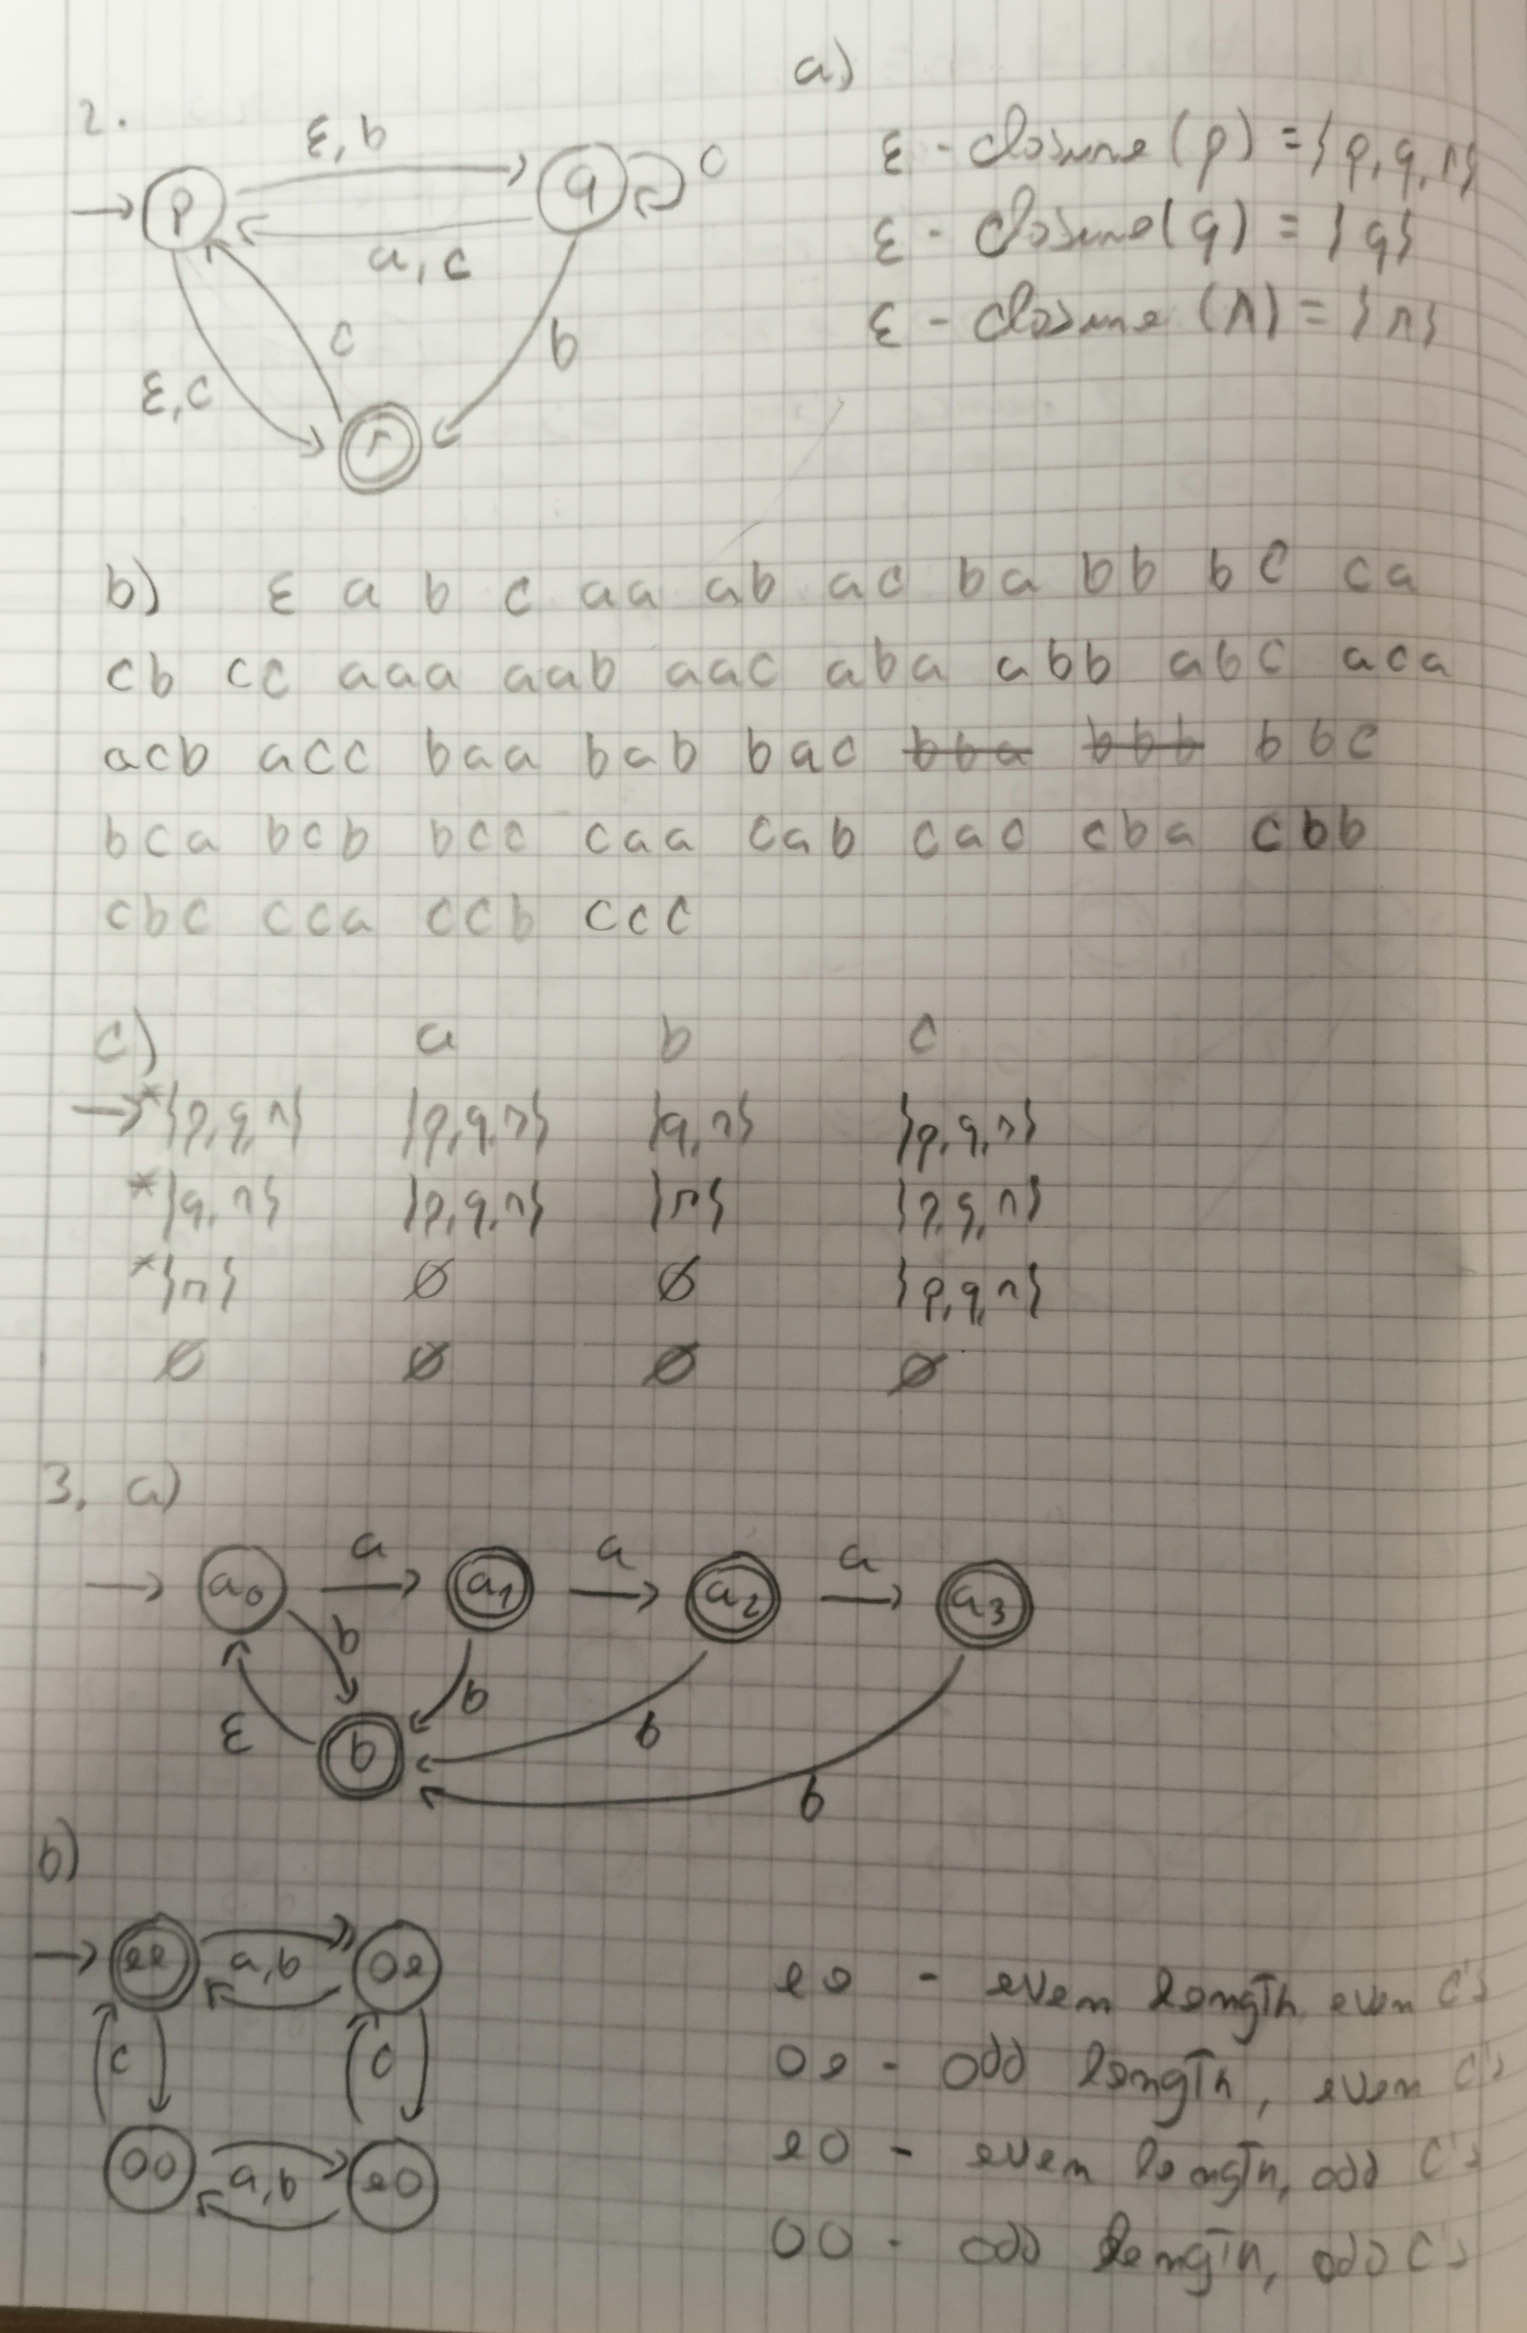 a)
2.
ε, b
p
q
c
a, c
c
b
ε, c
r
ε - closure (p) = {p, q, r}
ε - closure (q) = {q}
ε - closure (r) = {r}
b) ε a b c aa ab ac ba bb bc ca
cb cc aaa aab aac aba abb abc aca
acb acc baa bab bac bba bbb bbc
bca bcb bcc caa cab cac cba cbb
cbc cca ccb ccc
c) a b c
→*{p,q,r} {p,q,r} {q,r} {p,q,r}
*{q,r} {p,q,r} {r} {p,q,r}
*{r} ∅ ∅ {p,q,r}
∅ ∅ ∅ ∅
3, a)
a a a
a0 a1 a2 a3
b
b
b
ε
b
b
b)
ee a,b oe
c c
oo a,b eo
ee - even length even c's
oe - odd length, even c's
eo - even length, odd c's
oo - odd length, odd c's